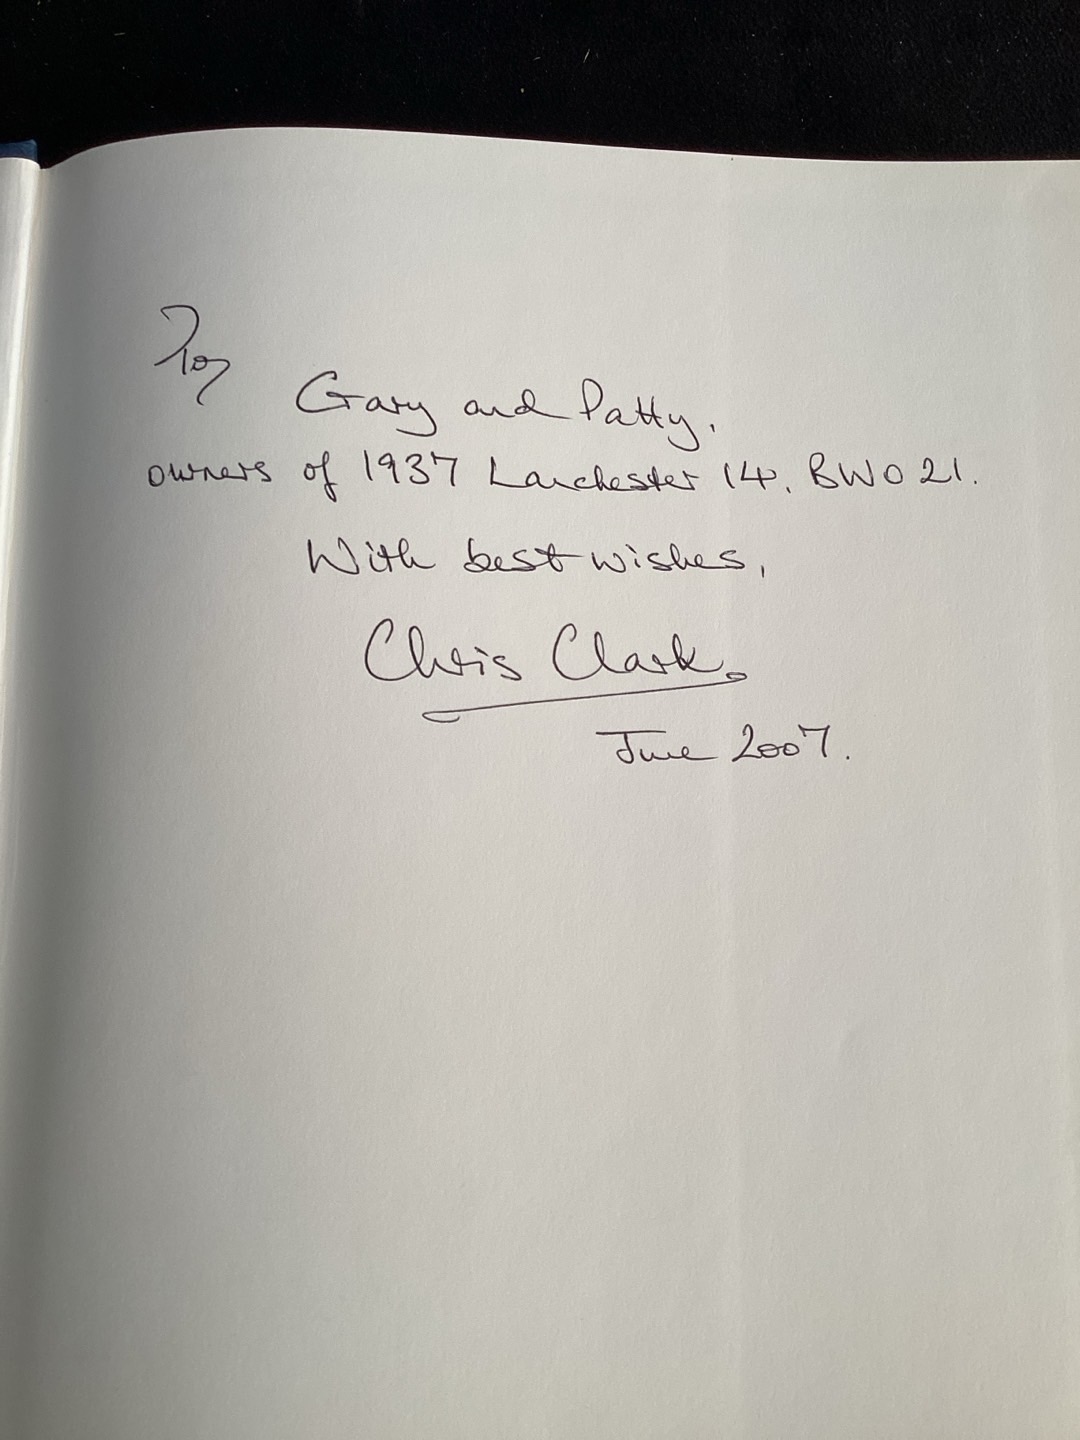 To
Gary and Patty,
owners of 1937 Lanchester 14, BWO 21.
With best wishes,
Chris Clark.
June 2007.